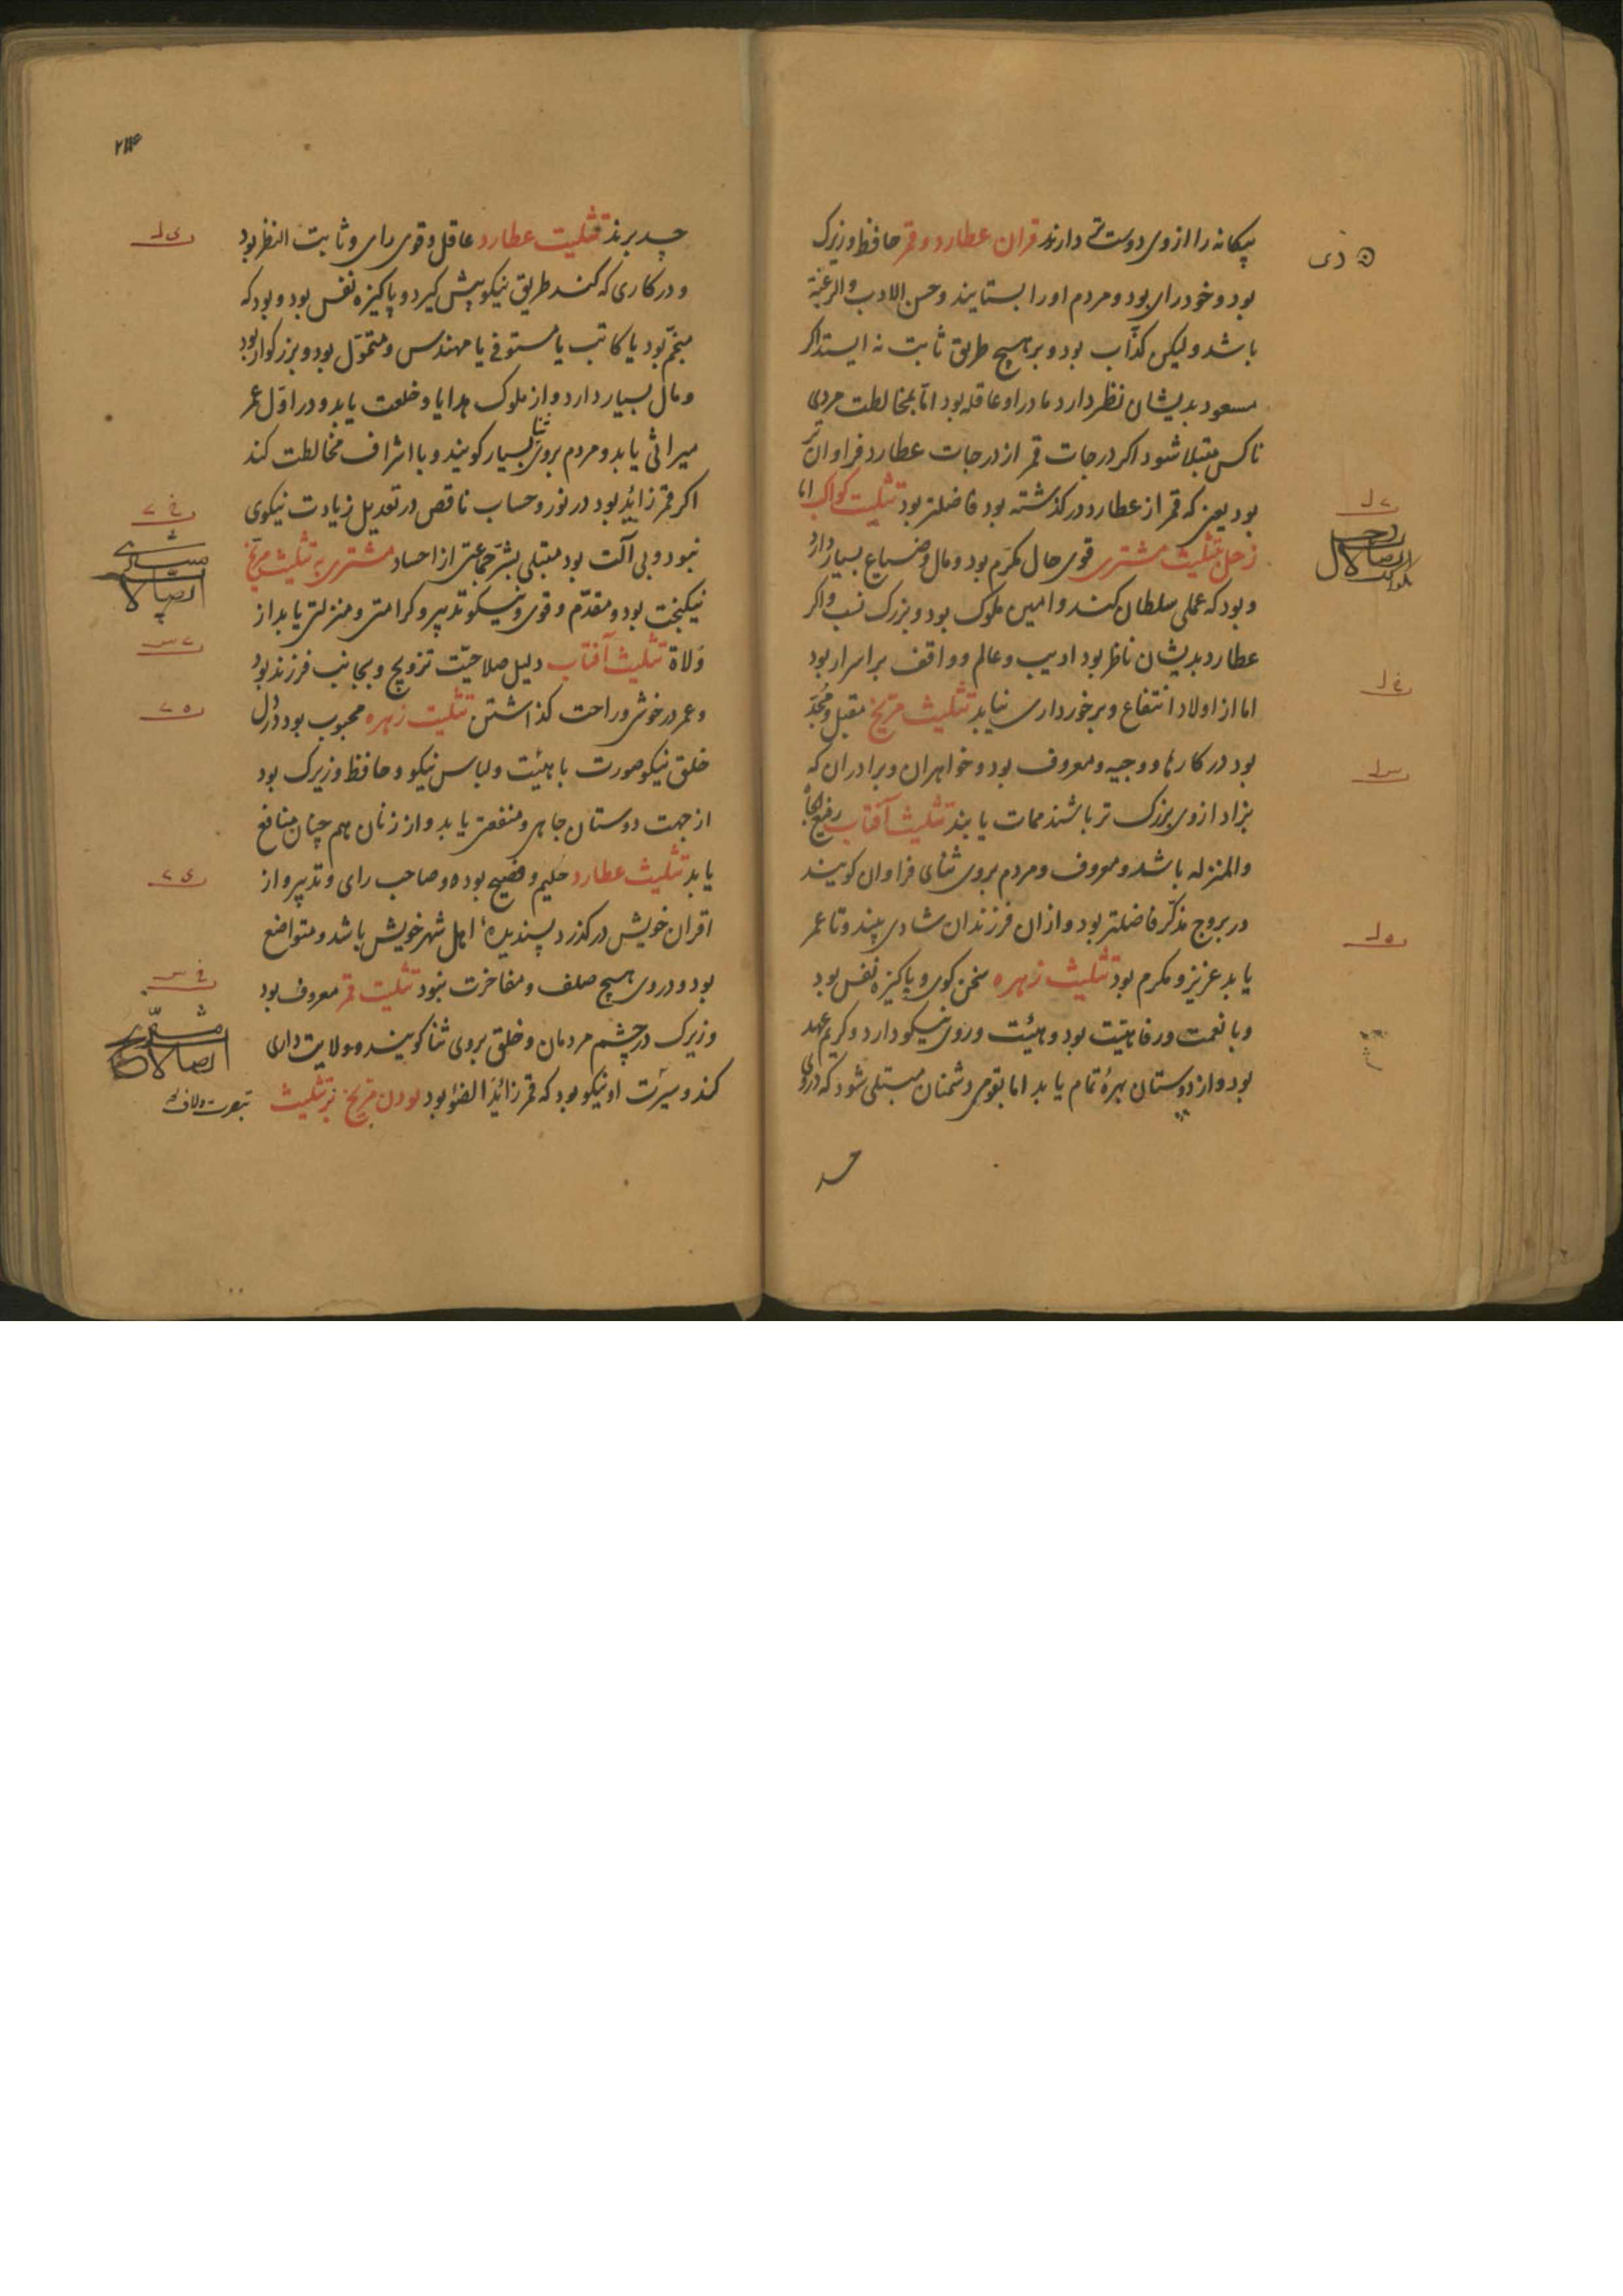 بیکانه را از وی دوست تر دارند قران عطارد و قمر حافظ و زیرک
بود و خود رای بود و مردم او را بستایند و حسن الادب و الرغبة
باشد ولیکن کذّاب بود و بر هیچ طریق ثابت نه ایستد اکر
مسعود بدیشان نظر دارد مادر او عاقله بود امّا بمخالطت مردی
ناکس مبتلا شود اکر درجات قمر از درجات عطارد فراوان تر
بود یعنی که قمر از عطارد در کذشته بود فاضلتر بود تثلیث کواکب اما
زحل بتثلیث مشتری قوی حال مکرّم بود و مال و ضیاع بسیار دارد
و بود که عملی سلطان کند و امین ملوک بود و بزرک نسب و اکر
عطارد بدیشان ناظر بود ادیب و عالم و واقف بر اسرار بود
اما از اولاد انتفاع و برخورداری نیابد تثلیث مریخ مقبل و مُجدّ
بود در کارها و وجیه و معروف بود و خواهران و برادران که
بزاد از وی بزرک تر باشند ممات یابند تثلیث آفتاب رفیع الجاه
والمنزله باشد و معروف و مردم بروی ثنای فراوان کویند
در بروج مذکّر فاضلتر بود و ازان فرزندان شادی بیند و تا عمر
یابد عزیز و مکرم بود تثلیث زهره سخن کوی و پاکیزه نفس بود
و با نعمت و رفاهیّت بود و هیئت و روی نیکو دارد و کریم عهد
بود و از دوستان بهرهٔ تمام یابد اما بقومی دشمنان مبتلی شود که در وی
حسد
۲۱۴
حسد برند تثلیث عطارد عاقل و قوی رای و ثابت النظر بود
و در کاری که کند طریق نیکو پیش کیرد و پاکیزه نفس بود و بود که
منجّم بود یا کاتب یا مستوفی یا مهندس و متموّل بود و بزرکوار بود
و مال بسیار دارد و از ملوک هدایا و خلعت یابد و در اوّل عمر
میراثی یابد و مردم بروی ثنا بسیار کویند و با اشراف مخالطت کند
اکر قمر زائد بود در نور و حساب ناقص در تعدیل زیادت نیکوی
نبود و بی آلت بود مبتلی بشرّ جماعتی از احساد مشتری به تثلیث مریخ
نیکبخت بود و مقدّم و قوی و نیسکو تدبیر و کرامتی و منزلتی یابد از
وُلاة تثلیث آفتاب دلیل صلاحیّت تزویج و بجانب فرزند بود
و عمر در خوشی و راحت کذاشتن تثلیث زهره محبوب بود در دل
خلق نیکو صورت با هیئت و لباس نیکو و حافظ و زیرک بود
از جهت دوستان جاهی و منفعتی یابد و از زنان هم چنان منافع
یابد تثلیث عطارد حلیم و فصیح بوده و صاحب رای و تدبیر و از
اقران خویش در کذرد پسندیدهٔ اهل شهر خویش باشد و متواضع
بود و در وی هیچ صلف و مفاخرت نبود تثلیث قمر معروف بود
و زیرک در چشم مردمان و خلق بروی ثنا کویند و ولایت داری
کند و سیرت او نیکو بود که قمر زائد الضوٴ بود بودن مریخ بر تثلیث